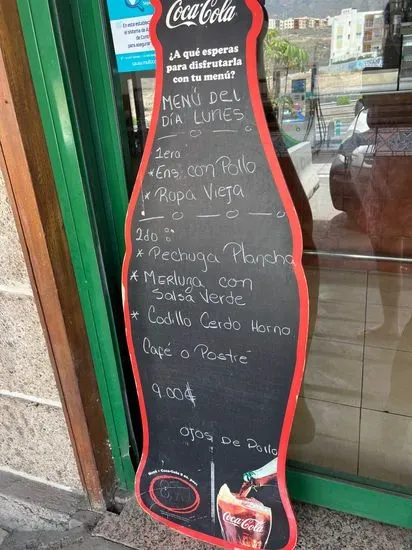 Coca-Cola
¿A qué esperas
para disfrutarla
con tu menú?
MENÚ DEL
DÍA LUNES
1ero
* Ens. con Pollo
* Ropa Vieja
2do :
* Pechuga Plancha
* Merluza con
Salsa Verde
* Codillo Cerdo Horno
Café o Postre
9.00€
Ojos De Pollo
Coca-Cola